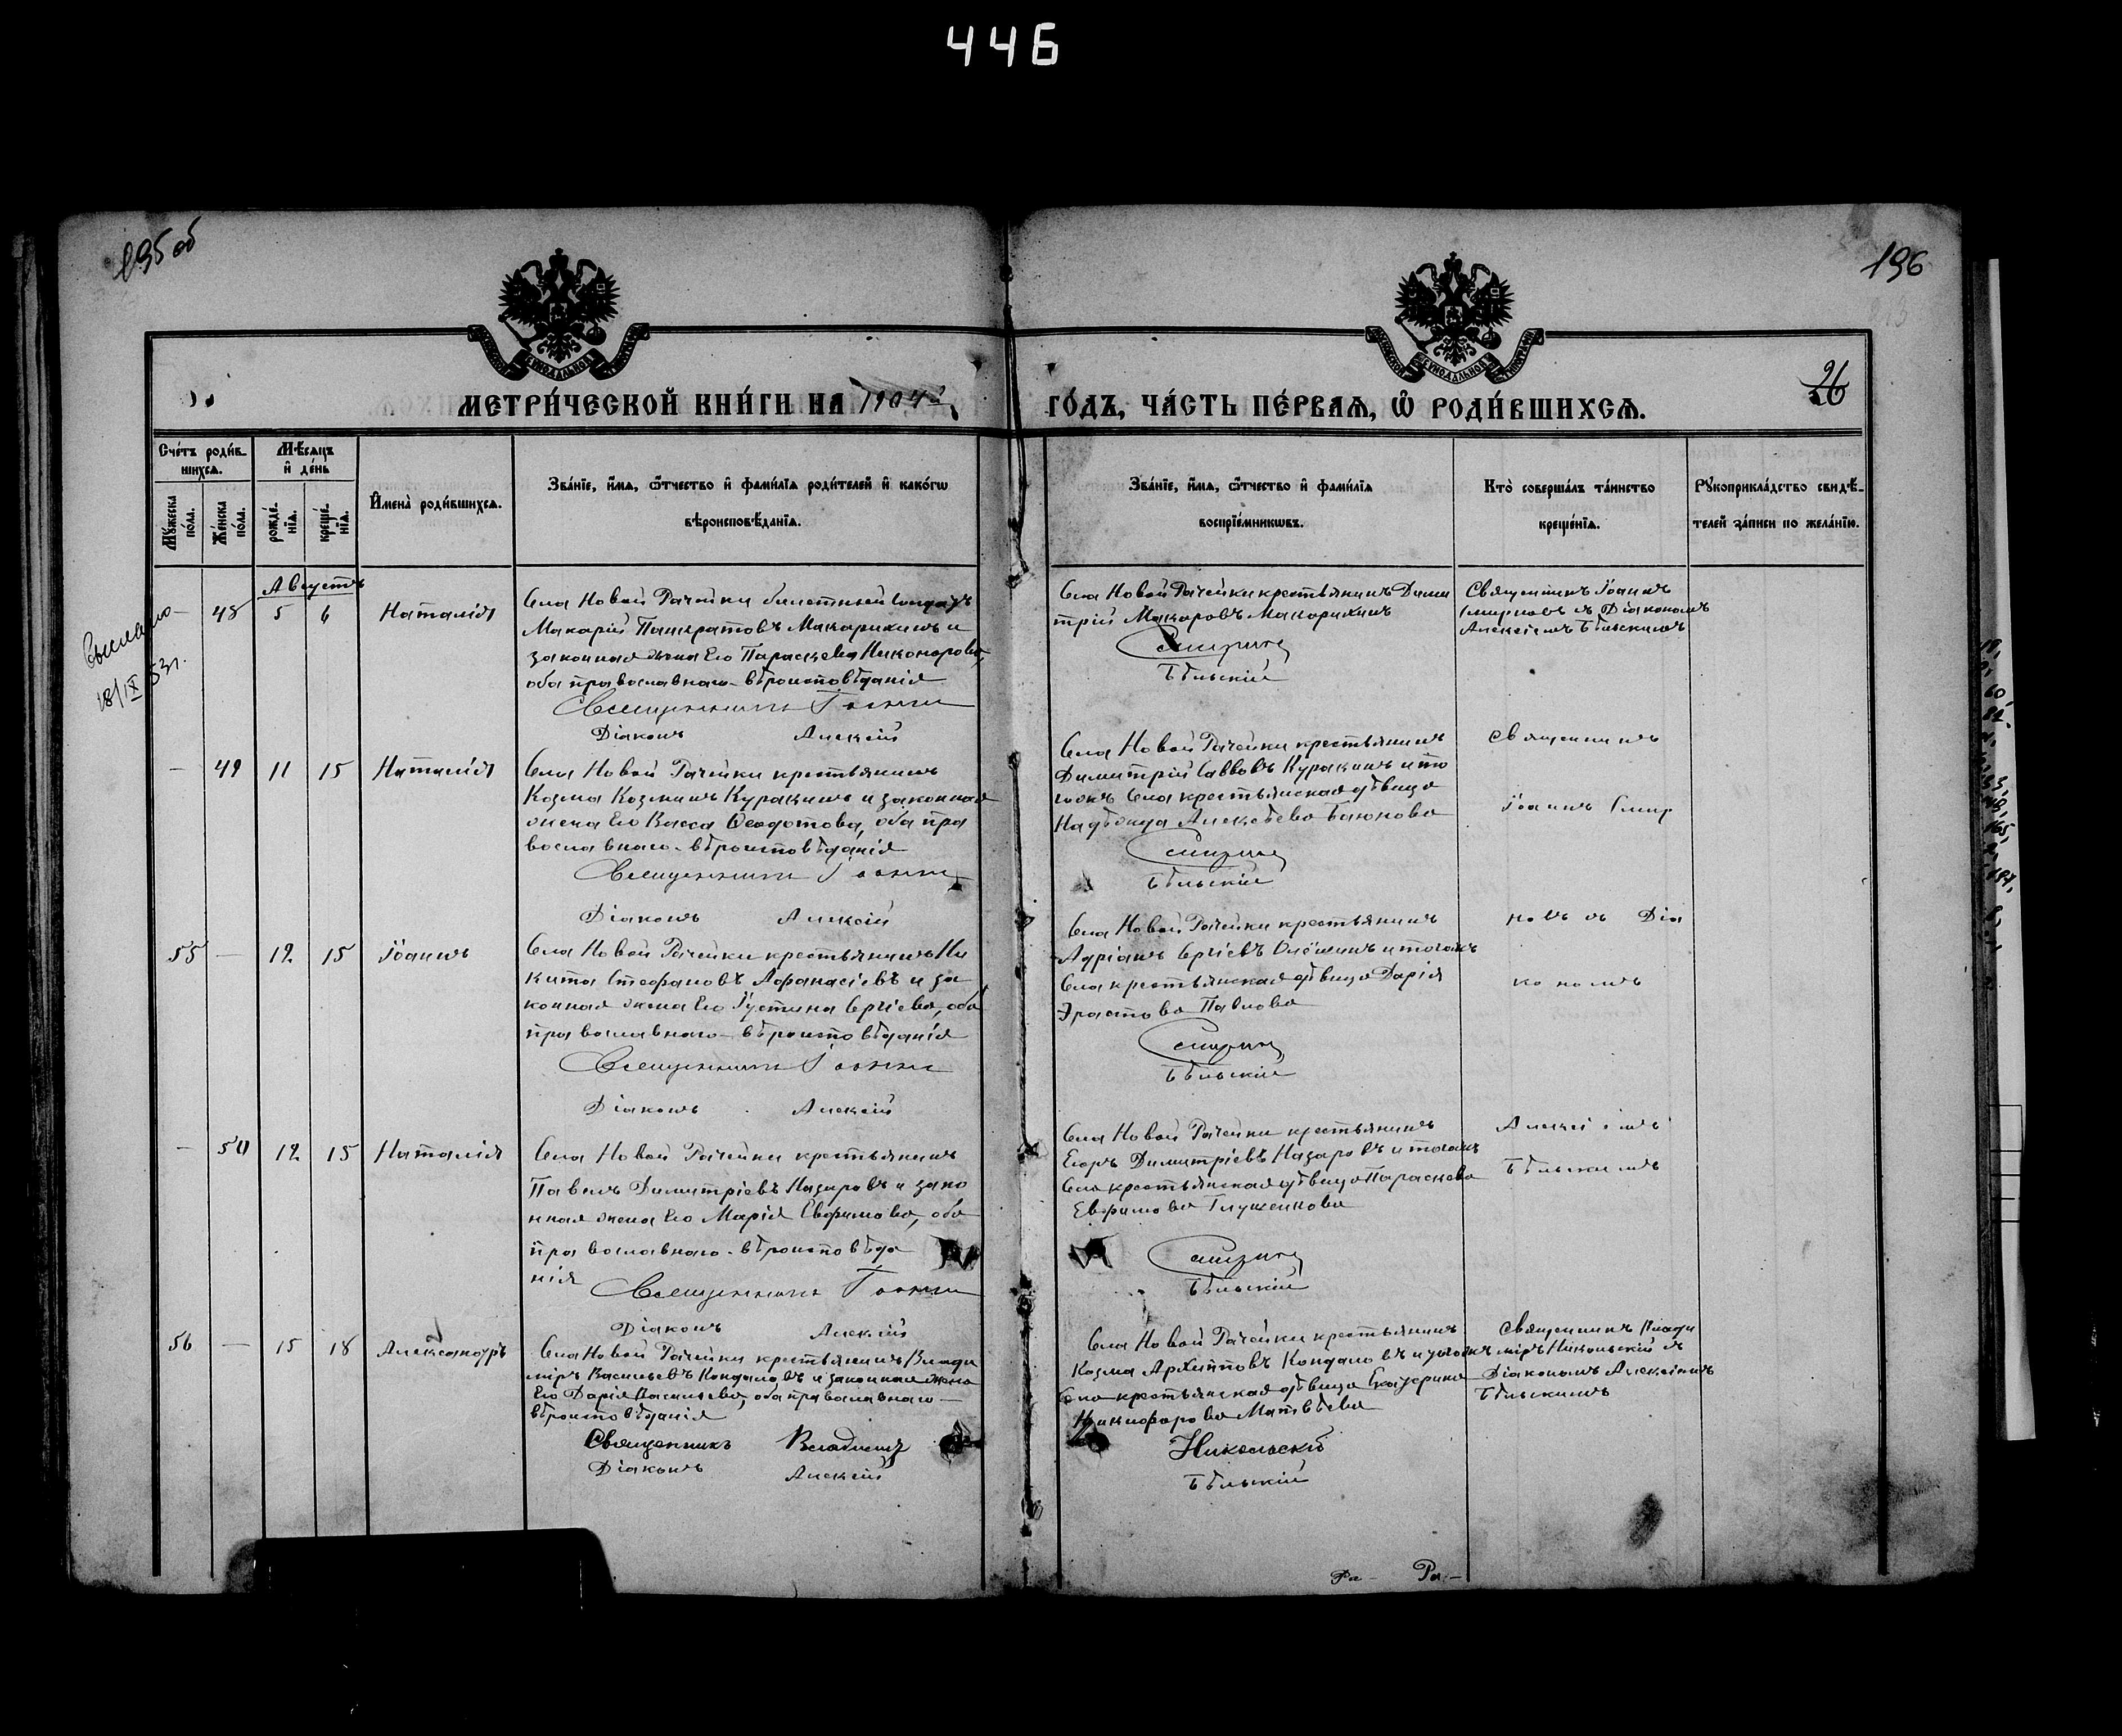 446
195 об
196
26
МЕТРИ́ЧЕСКОЙ КНИ́ГИ НА 1904й
ГО́ДЪ, ЧА́СТЬ ПЕ́РВАѦ, Ѽ РОДИ́ВШИХСѦ.
Сче́тъ роди́в-
шихсѧ.
Мѣ́сѧцъ
и҆ де́нь
Мꙋ́жеска по́ла.
Же́нска по́ла.
рожде́нїѧ.
креще́нїѧ.
И҆мена̀ роди́вшихсѧ.
Зва́нїе, и҆́мѧ, ѻ҆́тчество и҆ фами́лїѧ роди́телей и҆ како́гѡ
вѣроисповѣ́данїѧ.
Зва́нїе, и҆́мѧ, ѻ҆́тчество и҆ фами́лїѧ
воспрїе́мникѡвъ.
Кто̀ соверша́лъ та́инство
креще́нїѧ.
Рꙋкоприкла́дство свидѣ́-
телей за́писи по жела́нїю.
Выслано
18/IX 53 г.
Августъ
— 48 5 6 Наталія
Села Новой Рачейки билетный солдатъ
Макарій Панкратовъ Макарихинъ и
законная жена его Параскева Никонорова,
оба православнаго вѣроисповѣданія
Священникъ Іоаннъ
Діаконъ Алексій
Села Новой Рачейки крестьянинъ Дими
трій Макаровъ Макарихинъ
Смирновъ
Бѣльскій
Священникъ Іоаннъ
Смирновъ съ Діакономъ
Алексіемъ Бѣльскимъ
— 49 11 15 Наталія
Села Новой Рачейки крестьянинъ
Козма Козминъ Куракинъ и законная
жена его Васса Ѳеодотова, оба пра
вославнаго вѣроисповѣданія
Священникъ Іоаннъ
Діаконъ Алексій
Села Новой Рачейки крестьянинъ
Димитрій Саввовъ Куракинъ и то
гожъ села крестьянская дѣвица
Надѣжда Алексѣева Баюкова
Смирновъ
Бѣльскій
Священникъ
Іоаннъ Смир
55 — 12 15 Іоаннъ
Села Новой Рачейки крестьянинъ Ни
кита Стефановъ Афанасіевъ и за
конная жена его Іустина Сергіева, оба
православнаго вѣроисповѣданія
Священникъ Іоаннъ
Діаконъ Алексій
Села Новой Рачейки крестьянинъ
Адріанъ Сергіевъ и тогожъ
села крестьянская дѣвица Дарія
Эрастова Павлова
Смирновъ
Бѣльскій
новъ съ Діа
кономъ
— 50 12 15 Наталія
Села Новой Рачейки крестьянинъ
Павелъ Димитріевъ Назаровъ и зако
нная жена его Марія Евфимова, оба
православнаго вѣроисповѣда
нія
Священникъ Іоаннъ
Діаконъ Алексій
Села Новой Рачейки крестьянинъ
Егоръ Димитріевъ Назаровъ и тогожъ
села крестьянская дѣвица Параскева
Евфимова Глушенкова
Смирновъ
Бѣльскій
Алексіемъ
Бѣльскимъ
56 — 15 18 Александръ
Села Новой Рачейки крестьянинъ Влади
міръ Васильевъ Кондаловъ и законная жена
его Дарія Васильева, оба православнаго
вѣроисповѣданія
Священникъ Владиміръ
Діаконъ Алексій
Села Новой Рачейки крестьянинъ
Козма Архипповъ Кондаловъ и тогожъ
села крестьянская дѣвица Екатерина
Никифорова Матвѣева
Никольскій
Бѣльскій
Священникъ Влади
міръ Никольскій съ
Діакономъ Алексіемъ
Бѣльскимъ
Ра- Ра-